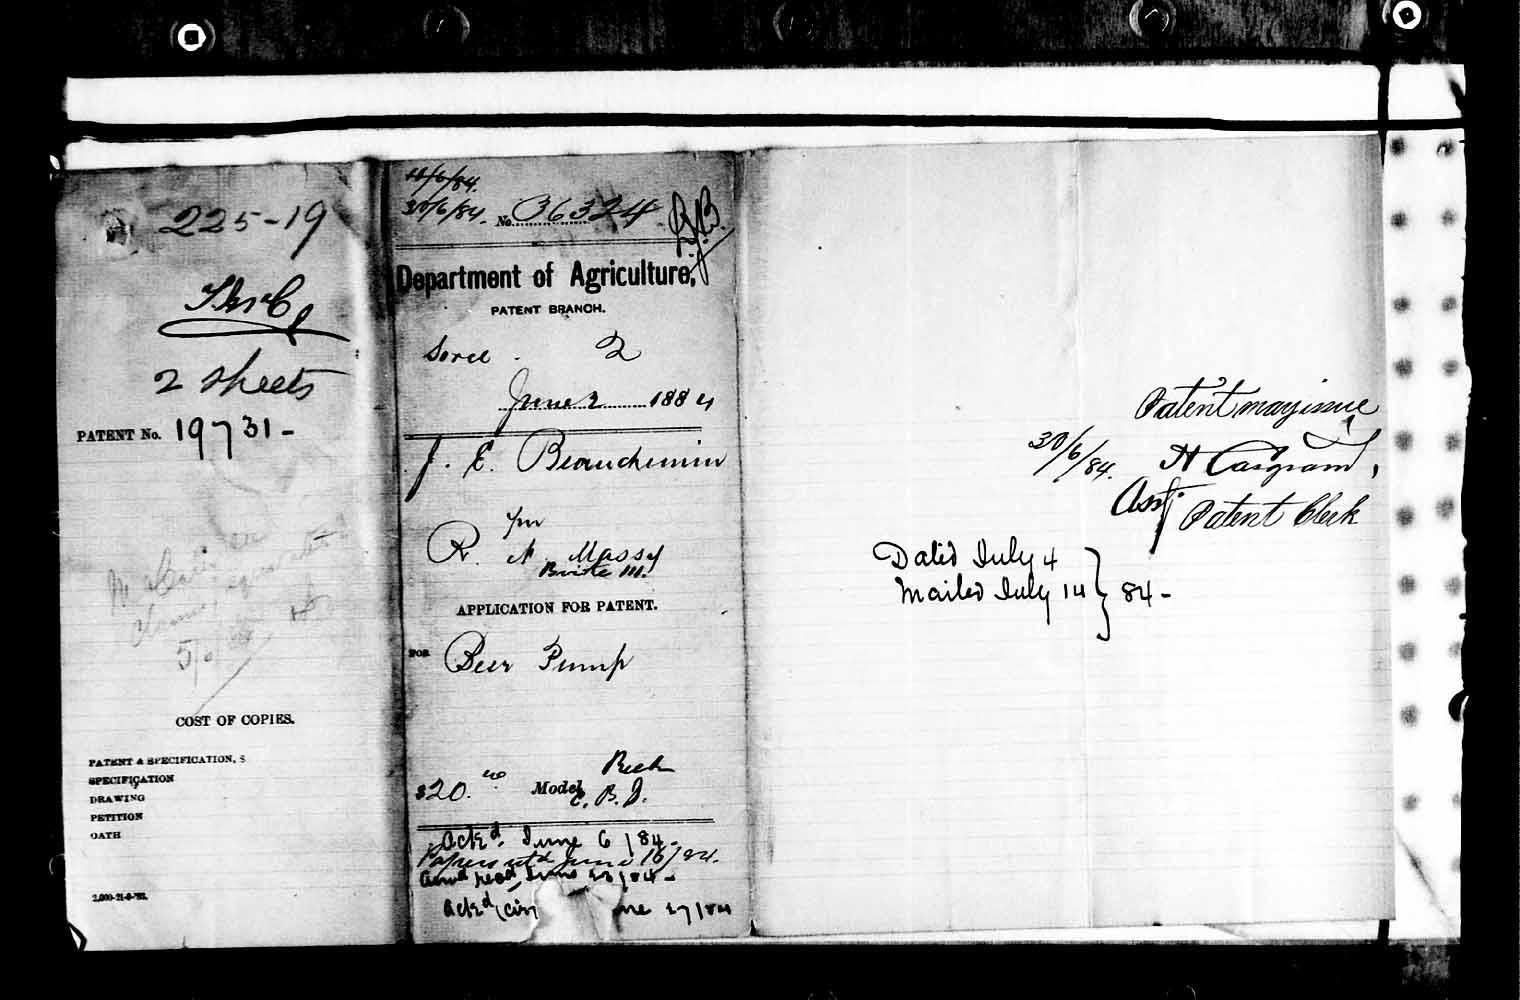 225-19
2 sheets
PATENT No. 19731-
5/6/84
COST OF COPIES.
PATENT & SPECIFICATION, $
SPECIFICATION
DRAWING
PETITION
OATH
2,000-21-9-'83.
/6/84.
30/6/84. No. 36324
Department of Agriculture,
PATENT BRANCH.
Sorel. 2
June 2 1884
J. E. Beauchemin
per
R. A. Massy
APPLICATION FOR PATENT.
FOR Beer Pump
$20. Model
Ack'd. June 6/84.
Papers ret'd June 16/84.
Ack'd 27/84
Patent may issue
30/6/84. H Casgrain,
Asst. Patent Clerk
Dated July 4
Mailed July 14 } 84-